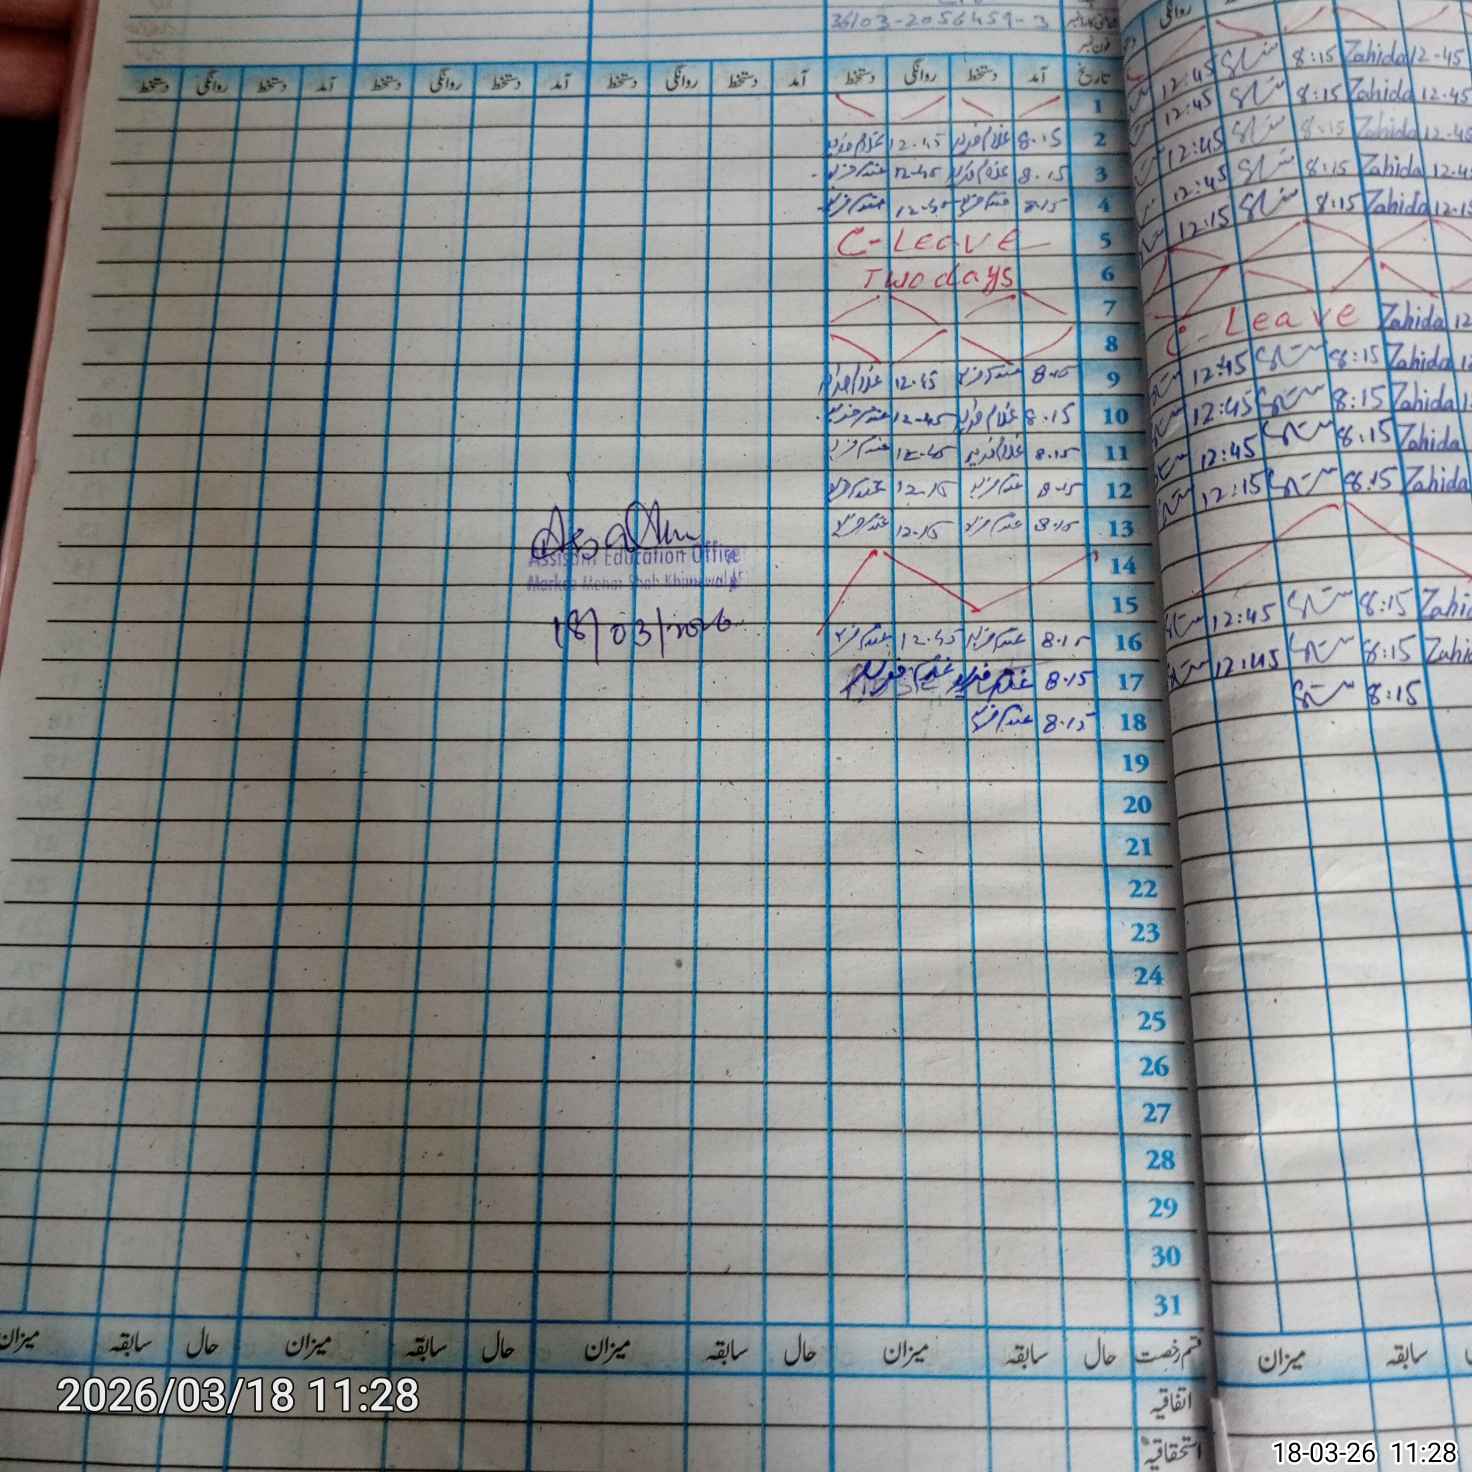 36103-2056459-3
فون نمبر
تاریخ آمد دستخط روانگی دستخط آمد دستخط روانگی دستخط آمد دستخط روانگی دستخط آمد دستخط روانگی دستخط
روانگی
1
2 8.15 غلام فرید 12.45 غلام فرید
3 8.15 غلام فرید 12-45 غلام فرید
4 8.15 غلام فرید 12.45 غلام فرید
5 C-Leave
6 Two days
7
8
9 8.15 غلام فرید 12.45 غلام فرید
10 8.15 غلام فرید 12-45 غلام فرید
11 8.15 غلام فرید 12-45 غلام فرید
12 8.15 غلام فرید 12-15 غلام فرید
13 8.15 غلام فرید 12-15 غلام فرید
14
15
16 8.15 غلام فرید 12.45 غلام فرید
17 8.15 غلام فرید
18 8.15 غلام فرید
19
20
21
22
23
24
25
26
27
28
29
30
31
Assistant Education Officer
18/03/2026
12:45 8:15 Zahida 12-45
12:45 8:15 Zahida 12.45
12:45 8:15 Zahida 12.45
12:45 8:15 Zahida
12.15 8:15 Zahida
C-Leave Zahida
12:45 8:15 Zahida
12:45 8:15 Zahida
12:45 8:15 Zahida
12:15 8:15 Zahida
12:45 8:15
12:45 8:15
8:15
قسم رخصت حال سابقہ میزان حال سابقہ میزان حال سابقہ میزان حال سابقہ میزان
سابقہ میزان
اتفاقیہ
استحقاقیہ
2026/03/18 11:28
18-03-26 11:28